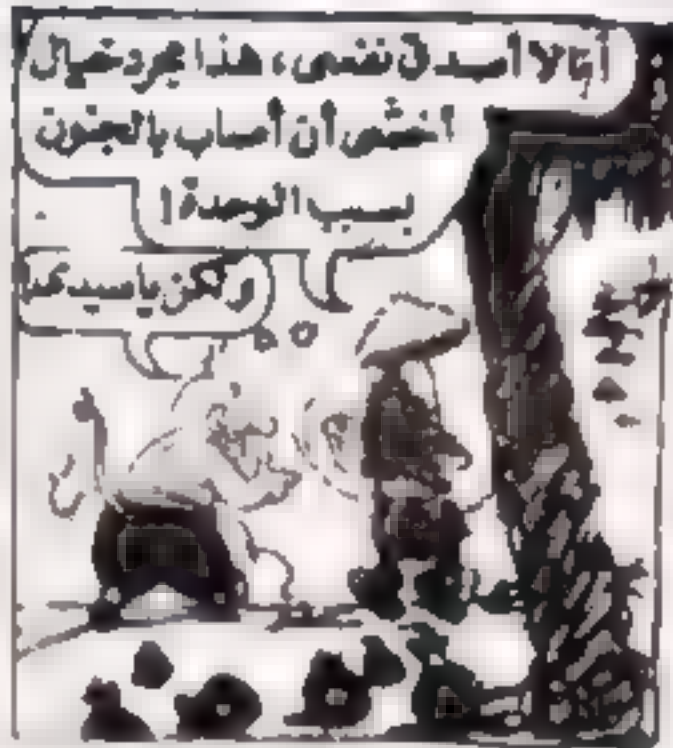 أنا لا أصدق نفسى، هذا مجرد خيال
أخشى أن أصاب بالجنون
بسبب الوحدة!
ولكن يا سيدى